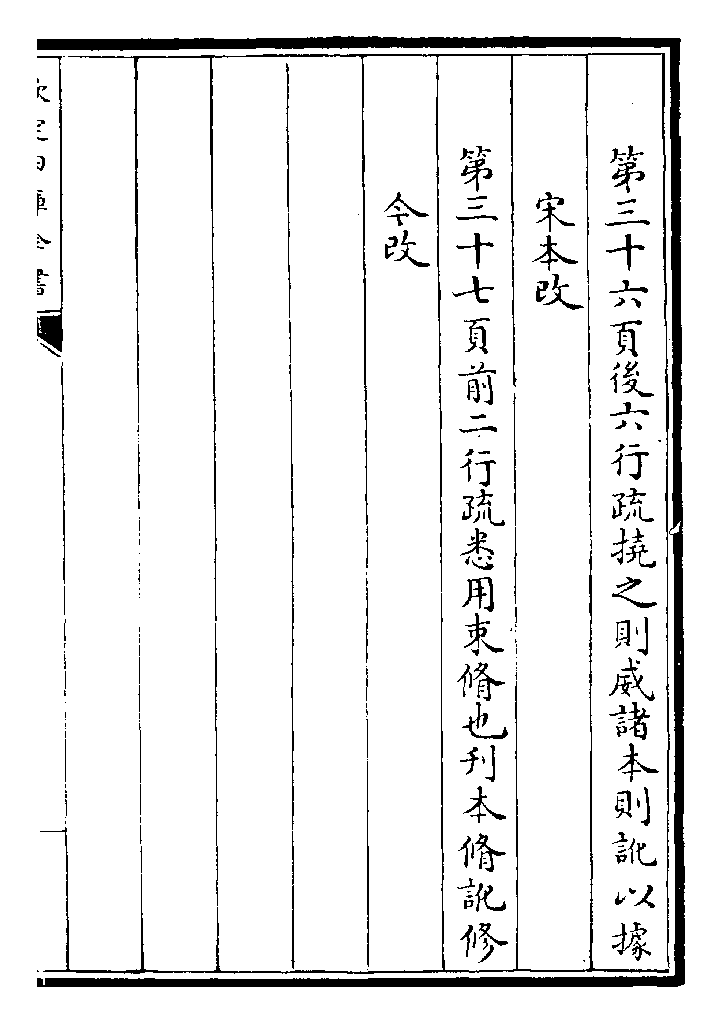 第三十六頁後六行疏撓之則威諸本則訛以據
宋本改
第三十七頁前二行疏悉用束脩也刋本脩訛修
今改
欽定四庫全書